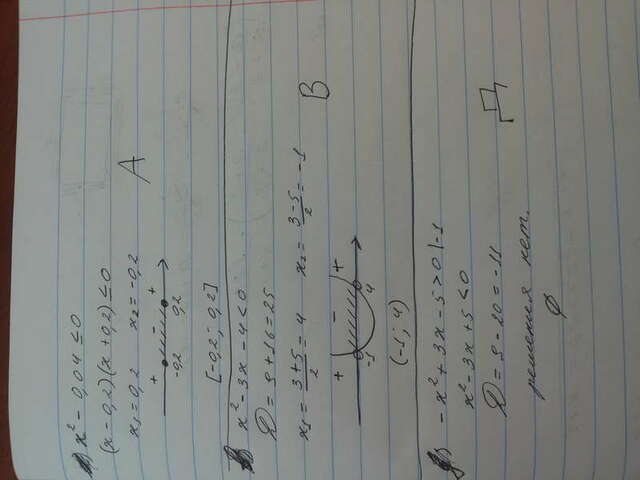 x² - 0,04 ≤ 0
(x - 0,2)(x + 0,2) ≤ 0
x₁ = 0,2 x₂ = -0,2
А
+ - +
-0,2 0,2
[-0,2; 0,2]
x² - 3x - 4 < 0
D = 9 + 16 = 25
x₁ = (3+5)/2 = 4 x₂ = (3-5)/2 = -1
В
+ - +
-1 4
(-1; 4)
-x² + 3x - 5 > 0 |·-1
x² - 3x + 5 < 0
D = 9 - 20 = -11
Д
решения нет.
∅